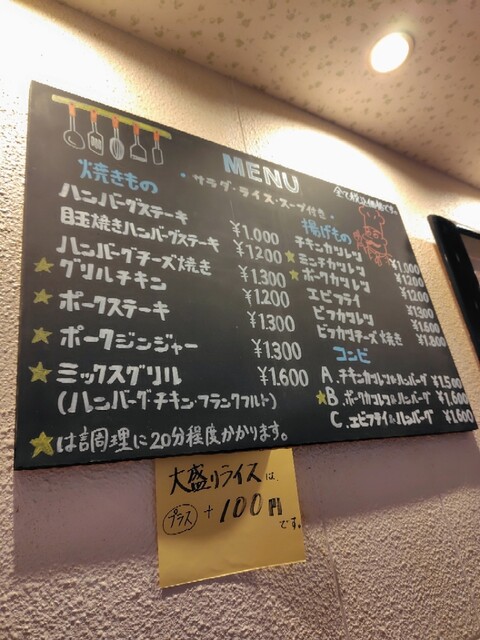 MENU
・サラダ・ライス・スープ付き・
全て税込価格です。
焼きもの
ハンバーグステーキ ¥1.000
目玉焼きハンバーグステーキ ¥1200
ハンバーグチーズ焼き ¥1.300
★グリルチキン ¥1200
★ポークステーキ ¥1300
★ポークジンジャー ¥1.300
★ミックスグリル ¥1.600
(ハンバーグ・チキン・フランクフルト)
★は調理に20分程度かかります。
揚げもの
チキンカツレツ ¥1.000
★ミンチカツレツ ¥1200
★ポークカツレツ ¥1200
エビフライ ¥1300
ビフカツレツ ¥1.600
ビフカツチーズ焼き ¥1.800
コンビ
A.チキンカツレツ&ハンバーグ ¥1.500
★B.ポークカツレツ&ハンバーグ ¥1.600
C.エビフライ&ハンバーグ ¥1.600
大盛りライスは、
プラス +100円
です。